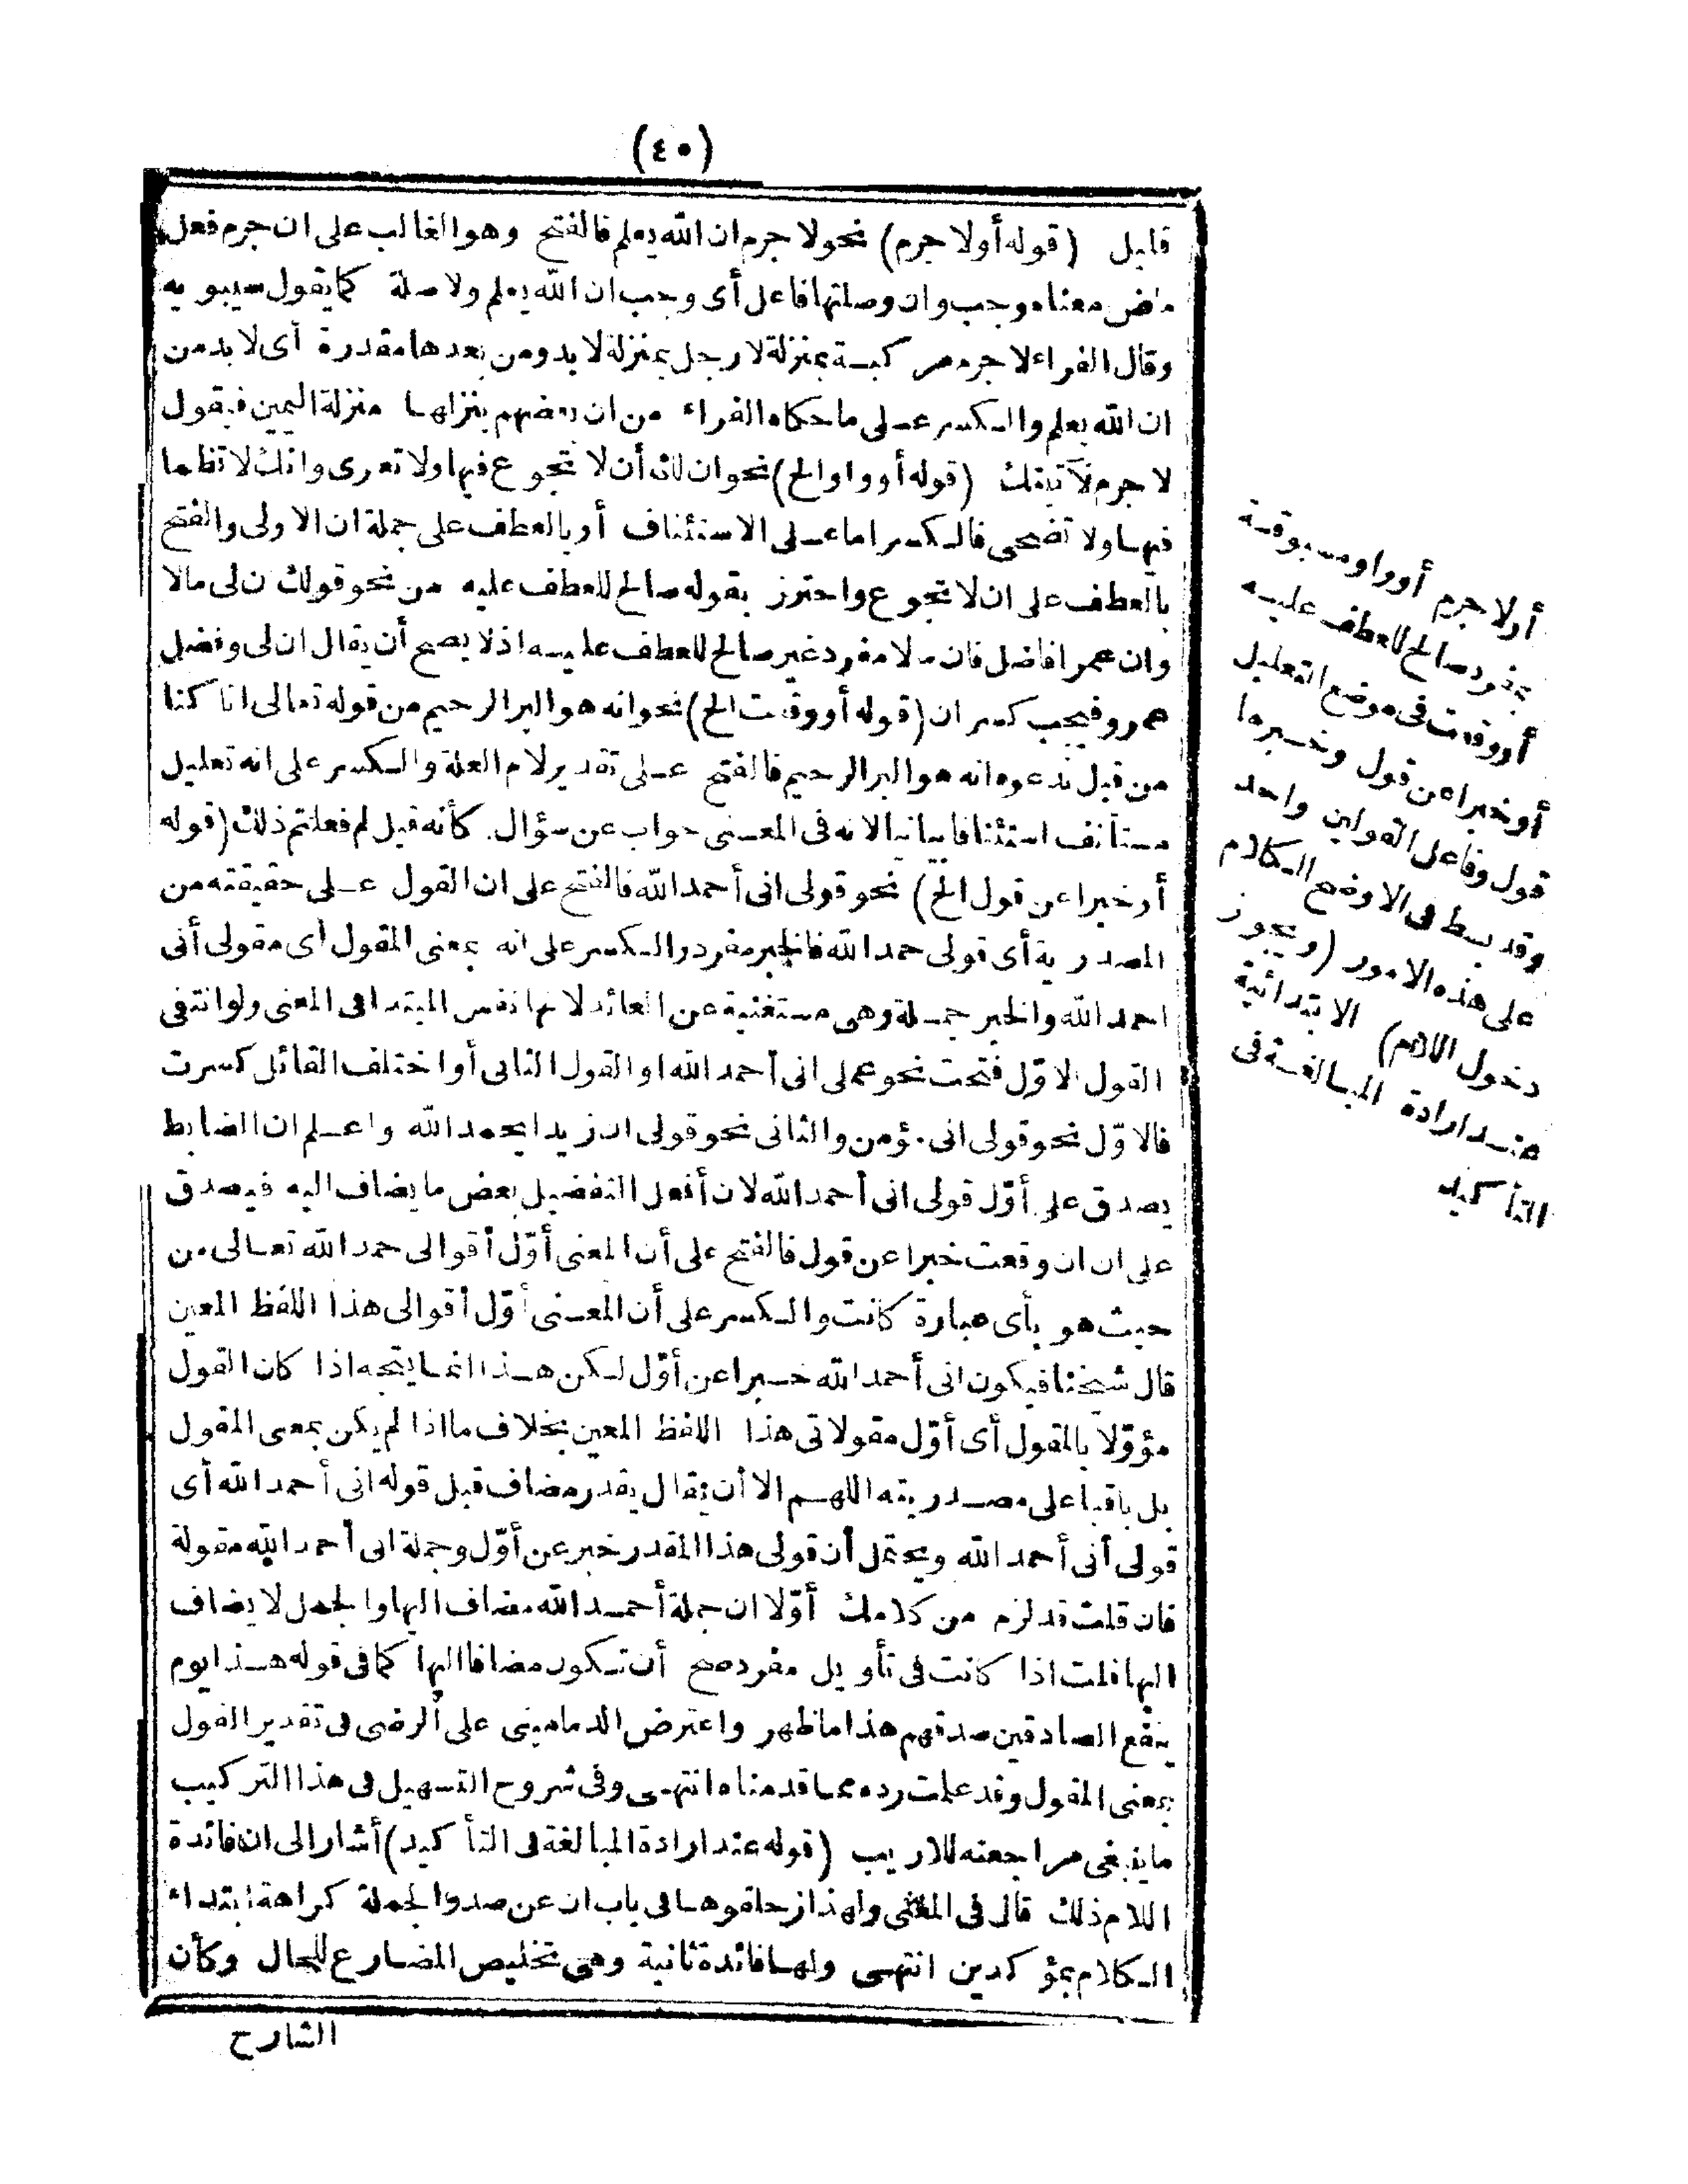 (٤٠)
قليل (قوله أولا جرم) نحولا جرم ان الله يعلم فالفتح وهو الغالب على ان جرم فعل
ماض معناه وجب وان وصلتها فاعل أى وجب ان الله يعلم ولا صلة كما يقول سيبويه
وقال الفراء لا جرم مركبة بمنزلة لا رجل بمنزلة لا بد ومن بعدها مقدرة أى لا بد من
ان الله يعلم والكسر على ما حكاه الفراء من ان بعضهم ينزلها منزلة اليمين فيقول
لا جرم لآتينك (قوله أو واوالخ) نحوان لك أن لا تجوع فيها ولا تعرى وانك لا تظمأ
فيها ولا تضحى فالكسر اما على الاستئناف أو بالعطف على جملة ان الاولى والفتح
بالعطف على ان لا تجوع واحترز بقوله صالح للعطف عليه من نحو قولك ن لى مالا
وان عمرا فاضل فان مالا مفرد غير صالح للعطف عليه اذ لا يصح أن يقال ان لى وفضل
عمرو فيجب كسر ان (قوله أو وقعت الخ) نحوانه هو البر الرحيم من قوله تعالى انا كنا
من قبل ندعوه انه هو البر الرحيم فالفتح على تقدير لام العلة والكسر على انه تعليل
مستأنف استئنافا بيانيا لانه فى المعنى جواب عن سؤال. كأنه قيل لم فعلتم ذلك (قوله
أو خبرا عن قول الخ) نحو قولى انى أحمد الله فالفتح على ان القول على حقيقته من
المصدرية أى قولى حمد الله فالخبر مفرد والكسر على انه بمعنى المقول أى مقولى أنى
احمد الله والخبر جملة وهى مستغنية عن العائد لانها نفس المبتدا فى المعنى ولو انتفى
القول الاوّل فتحت نحو عملى انى أحمد الله او القول الثانى أو اختلف القائل كسرت
فالاوّل نحو قولى انى مؤمن والثانى نحو قولى ان زيدا يحمد الله واعلم ان الضابط
يصدق على أوّل قولى انى أحمد الله لان أفعل التفضيل بعض ما يضاف اليه فيصدق
على ان ان وقعت خبرا عن قول فالفتح على أن المعنى أوّل أقوالى حمد الله تعالى من
حيث هو بأى عبارة كانت والكسر على أن المعنى أوّل أقوالى هذا اللفظ المعين
قال شيخنا فيكون انى أحمد الله خبرا عن أوّل لكن هذا انما يتجه اذا كان القول
مؤوّلا بالمقول أى أوّل مقولاتى هذا اللفظ المعين بخلاف ما اذا لم يكن بمعنى المقول
بل باقيا على مصدريته اللهم الا أن يقال يقدر مضاف قبل قوله انى أحمد الله أى
قولى أنى أحمد الله ويحتمل أن قولى هذا المقدر خبر عن أوّل وجملة انى أحمد الله مقولة
فان قلت قد لزم من كلامك أوّلا ان جملة أحمد الله مضاف اليها والجمل لا يضاف
اليها قلت اذا كانت فى تأويل مفرد صح أن تكون مضافا اليها كما فى قوله هذا يوم
ينفع الصادقين صدقهم هذا ما ظهر واعترض الدمامينى على الرضى فى تقدير القول
بمعنى المقول وقد علمت رده مما قدمناه انتهى وفى شروح التسهيل فى هذا التركيب
ما ينبغى مراجعته للاريب (قوله عند ارادة المبالغة فى التأكيد) أشار الى ان فائدة
اللام ذلك قال فى المغنى ولهذا زحلقوها فى باب ان عن صدر الجملة كراهة ابتداء
الكلام بمؤكدين انتهى ولها فائدة ثانية وهى تخليص المضارع للحال وكأن
الشارح
أولا جرم أو واو مسبوقة
بمفرد صالح للعطف عليه
أو وقعت فى موضع التعليل
أو خبرا عن قول وخبرها
قول وفاعل القولين واحد
وقد بسط فى الاوضح الكلام
على هذه الامور (ويجوز
دخول اللام) الابتدائية
عند ارادة المبالغة فى
التأكيد